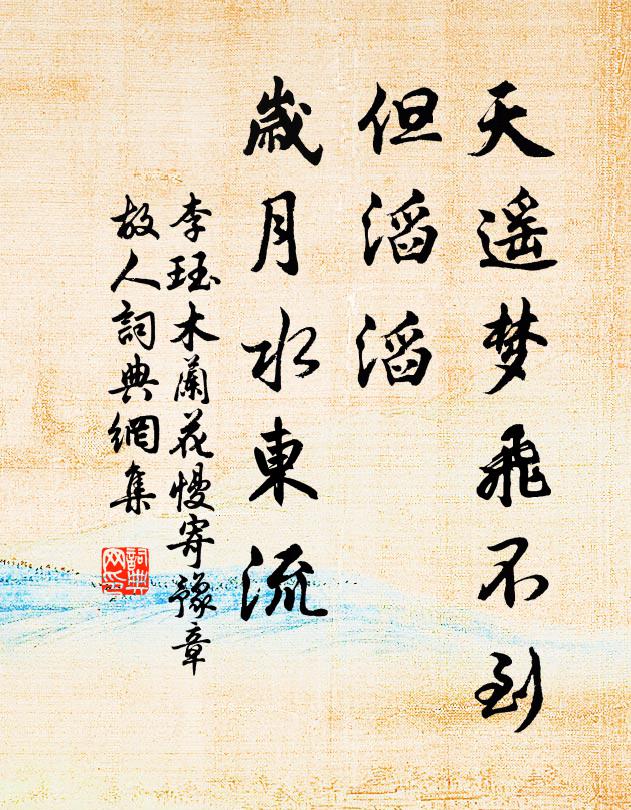 天遥梦飛不到
但滔滔
歲月水東流
李珏木蘭花慢寄豫章
故人詞典網集
詞典网印